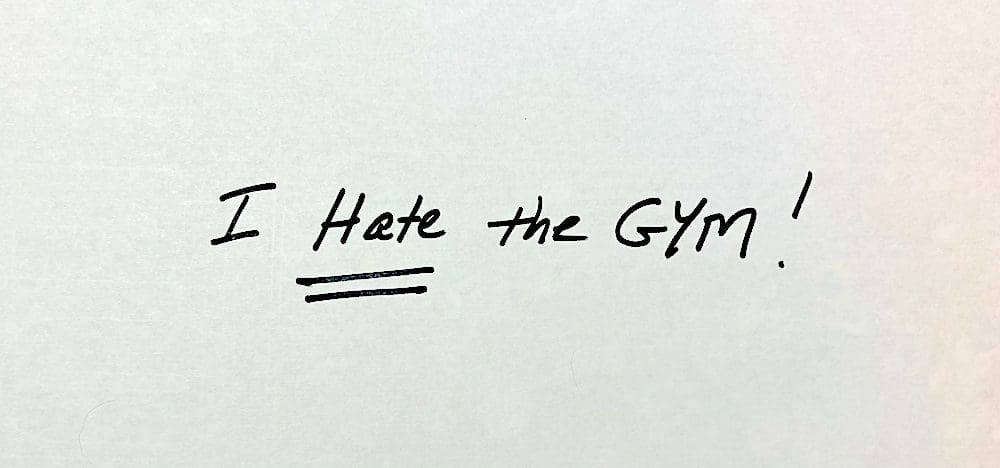 I Hate the GYM!